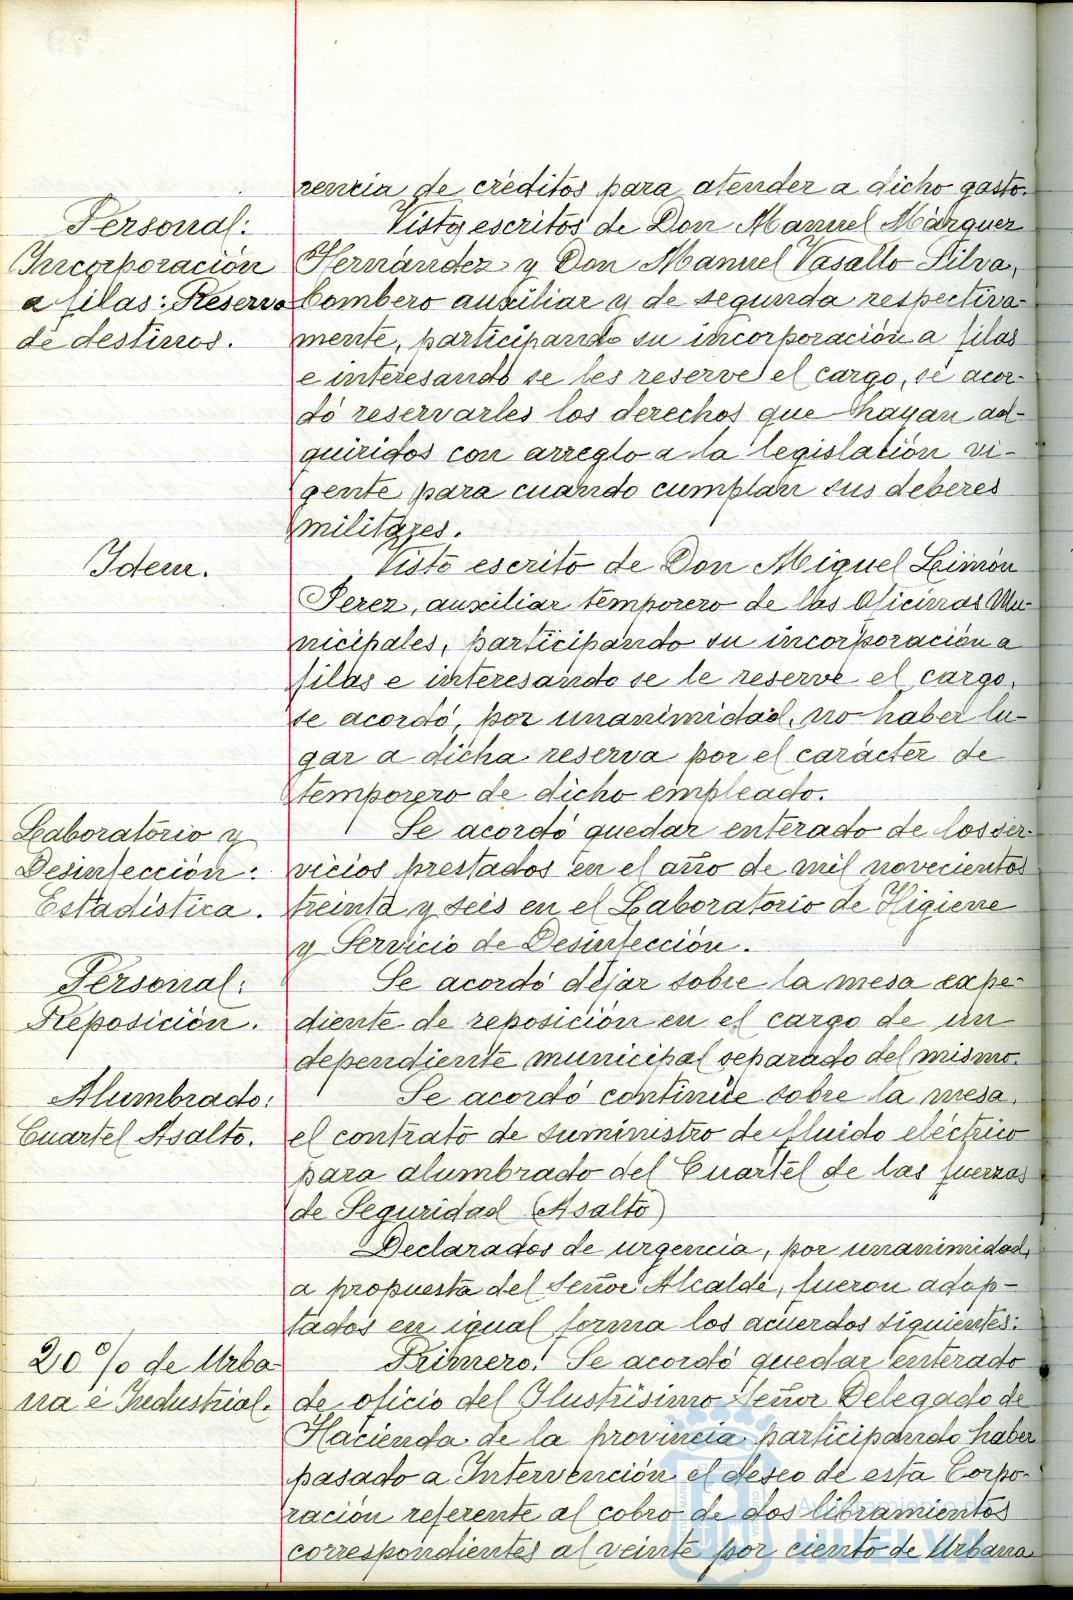 rencia de créditos para atender a dicho gasto.
Personal:
Incorporación
a filas: Reserva
de destinos.
Vistos escritos de Don Manuel Márquez
Hernández y Don Manuel Vasallo Silva,
bombero auxiliar y de segunda respectiva-
mente, participando su incorporación a filas
e interesando se les reserve el cargo, se acor-
dó reservarles los derechos que hayan ad-
quiridos con arreglo a la legislación vi-
gente para cuando cumplan sus deberes
militares.
Idem.
Visto escrito de Don Miguel Limón
Perez, auxiliar temporero de las Oficinas Mu-
nicipales, participando su incorporación a
filas e interesando se le reserve el cargo,
se acordó, por unanimidad, no haber lu-
gar a dicha reserva por el carácter de
temporero de dicho empleado.
Laboratorio y
Desinfección:
Estadística.
Se acordó quedar enterado de los ser-
vicios prestados en el año de mil novecientos
treinta y seis en el Laboratorio de Higiene
y Servicio de Desinfección.
Personal:
Reposición.
Se acordó dejar sobre la mesa expe-
diente de reposición en el cargo de un
dependiente municipal separado del mismo.
Alumbrado:
Cuartel Asalto.
Se acordó continúe sobre la mesa,
el contrato de suministro de fluido eléctrico
para alumbrado del Cuartel de las fuerzas
de Seguridad (Asalto)
Declarados de urgencia, por unanimidad,
a propuesta del Señor Alcalde, fueron adop-
tados en igual forma los acuerdos siguientes:
20 % de Urba-
na é Industrial.
Primero: Se acordó quedar enterado
de oficio del Ilustrísimo Señor Delegado de
Hacienda de la provincia participando haber
pasado a Intervención el deseo de esta Corpo-
ración referente al cobro de dos libramientos
correspondientes al veinte por ciento de Urbana
Ayuntamiento de
HUELVA